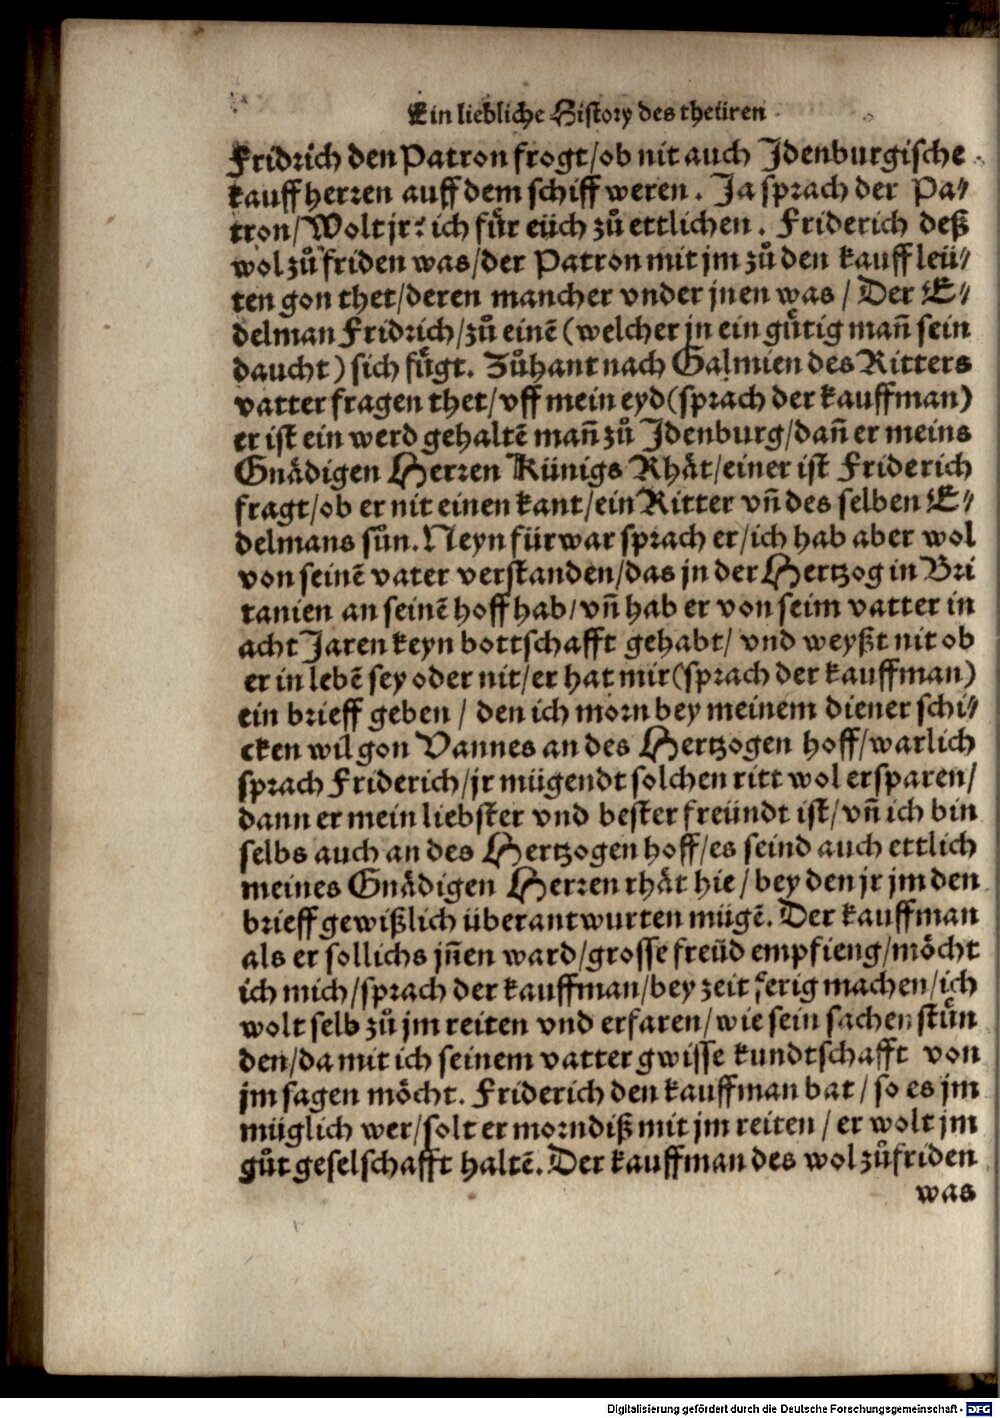 Ein liebliche History des theüren
Fridrich den Patron frogt/ob nit auch Jdenburgische
kauffherren auff dem schiff weren. Ja sprach der Pa⸗
tron/Wolt jr: ich fuͤr eüch zuͦ ettlichen. Friderich deß
wol zuͦ friden was/der Patron mit jm zuͦ den kauffleü⸗
ten gon thet/deren mancher vnder jnen was/ Der E⸗
delman Fridrich/zuͦ einẽ (welcher jn ein guͤtig mañ sein
daucht) sich fuͤgt. Zuͦhant nach Galmien des Ritters
vatter fragen thet/vff mein eyd(sprach der kauffman)
er ist ein werd gehaltẽ mañ zuͦ Jdenburg/dañ er meins
Gnaͤdigen Herren Künigs Rhaͤt/einer ist Friderich
fragt/ob er nit einen kant/ein Ritter vñ des selben E⸗
delmans sun. Neyn fürwar sprach er/ich hab aber wol
von seinẽ vater verstanden/das jn der Hertzog in Bri
tanien an seinẽ hoff hab/vñ hab er von seim vatter in
acht Jaren keyn bottschafft gehabt/ vnd weyßt nit ob
er in lebẽ sey oder nit/er hat mir(sprach der kauffman)
ein brieff geben / den ich morn bey meinem diener schi⸗
cken wil gon Vannes an des Hertzogen hoff/warlich
sprach Friderich/jr mügendt solchen ritt wol ersparen/
dann er mein liebster vnd bester freündt ist/vñ ich bin
selbs auch an des Hertzogen hoff/es seind auch ettlich
meines Gnaͤdigen Herren rhaͤt hie/bey den jr jm den
brieff gewißlich überantwurten mügẽ. Der kauffman
als er sollichs jñen ward/grosse freüd empfieng/moͤcht
ich mich/sprach der kauffman/bey zeit ferig machen/ich
wolt selb zuͦ jm reiten vnd erfaren/wie sein sachen stuͤn
den/da mit ich seinem vatter gwisse kundtschafft von
jm sagen moͤcht. Friderich den kauffman bat/ so es jm
müglich wer/solt er morndiß mit jm reiten / er wolt jm
guͦt geselschafft haltẽ. Der kauffman des wol zuͦfriden
was
Digitalisierung gefördert durch die Deutsche Forschungsgemeinschaft - DFG